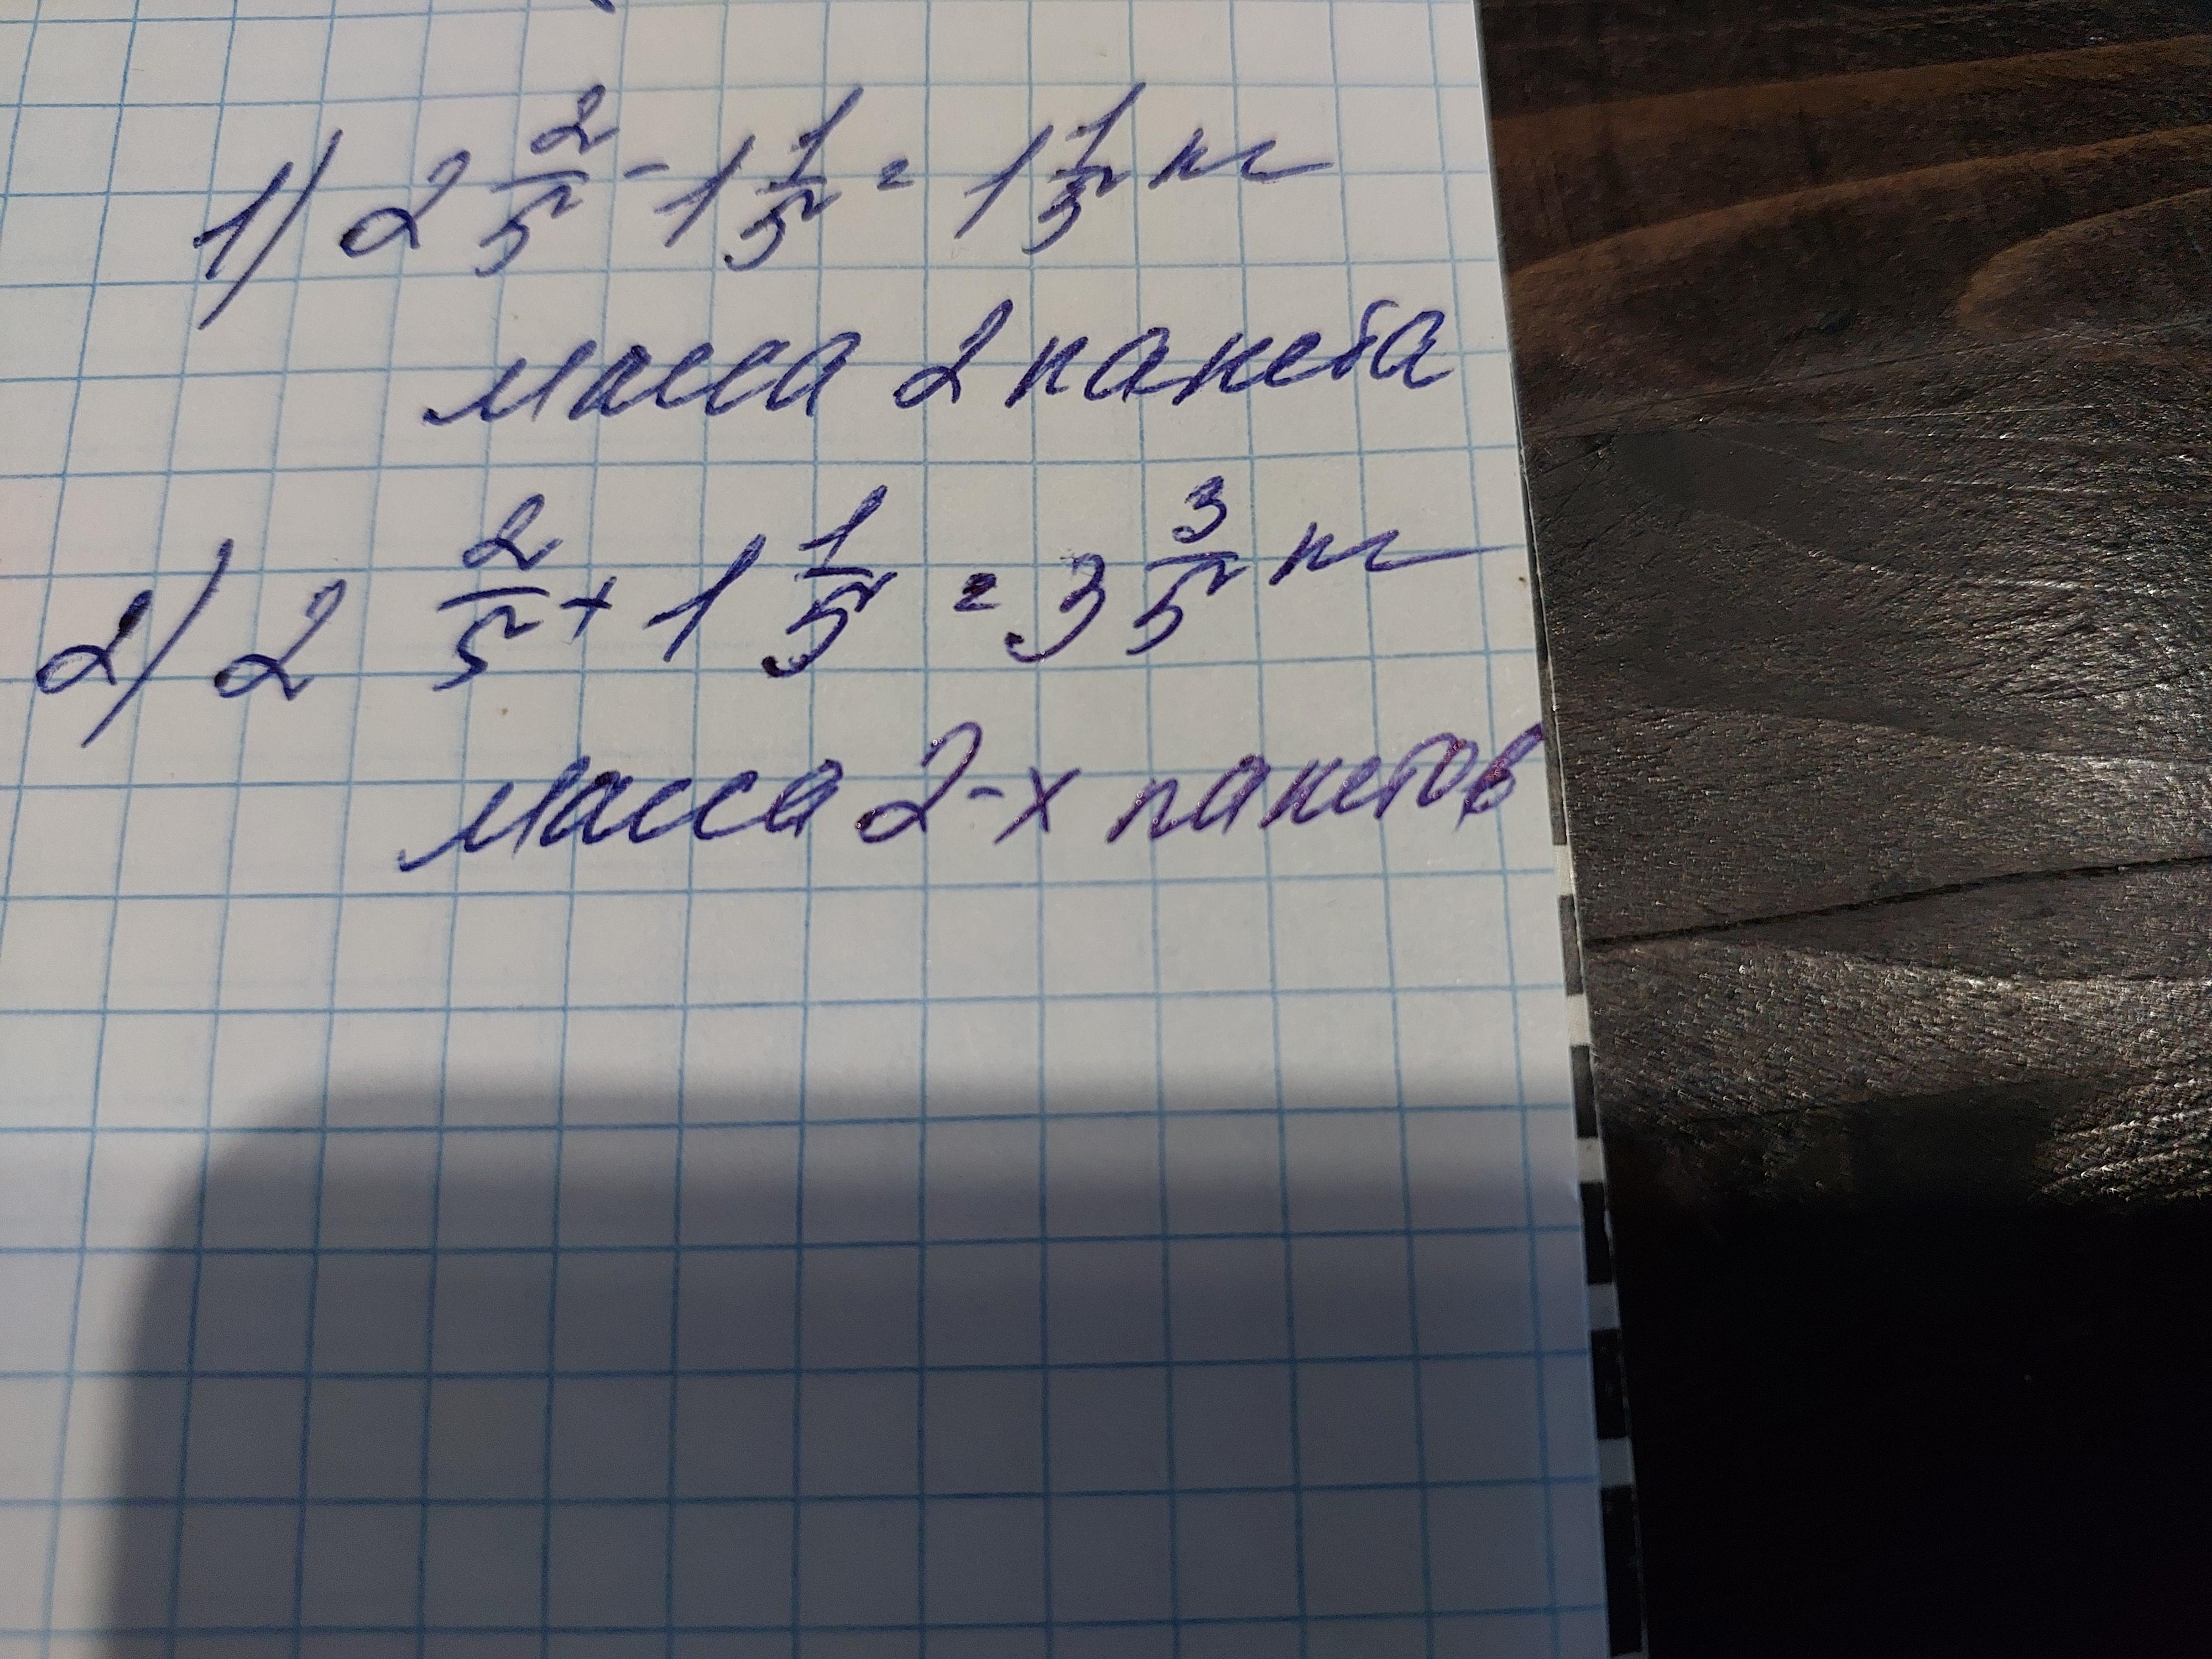 1) 2 2/5 - 1 1/5 = 1 1/5 кг
масса 2 пакета
2) 2 2/5 + 1 1/5 = 3 3/5 кг
масса 2-х пакетов